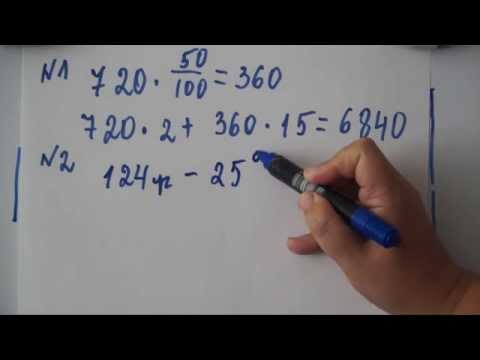 N1 720 · 50/100 = 360
720 · 2 + 360 · 15 = 6840
N2 124гр - 25